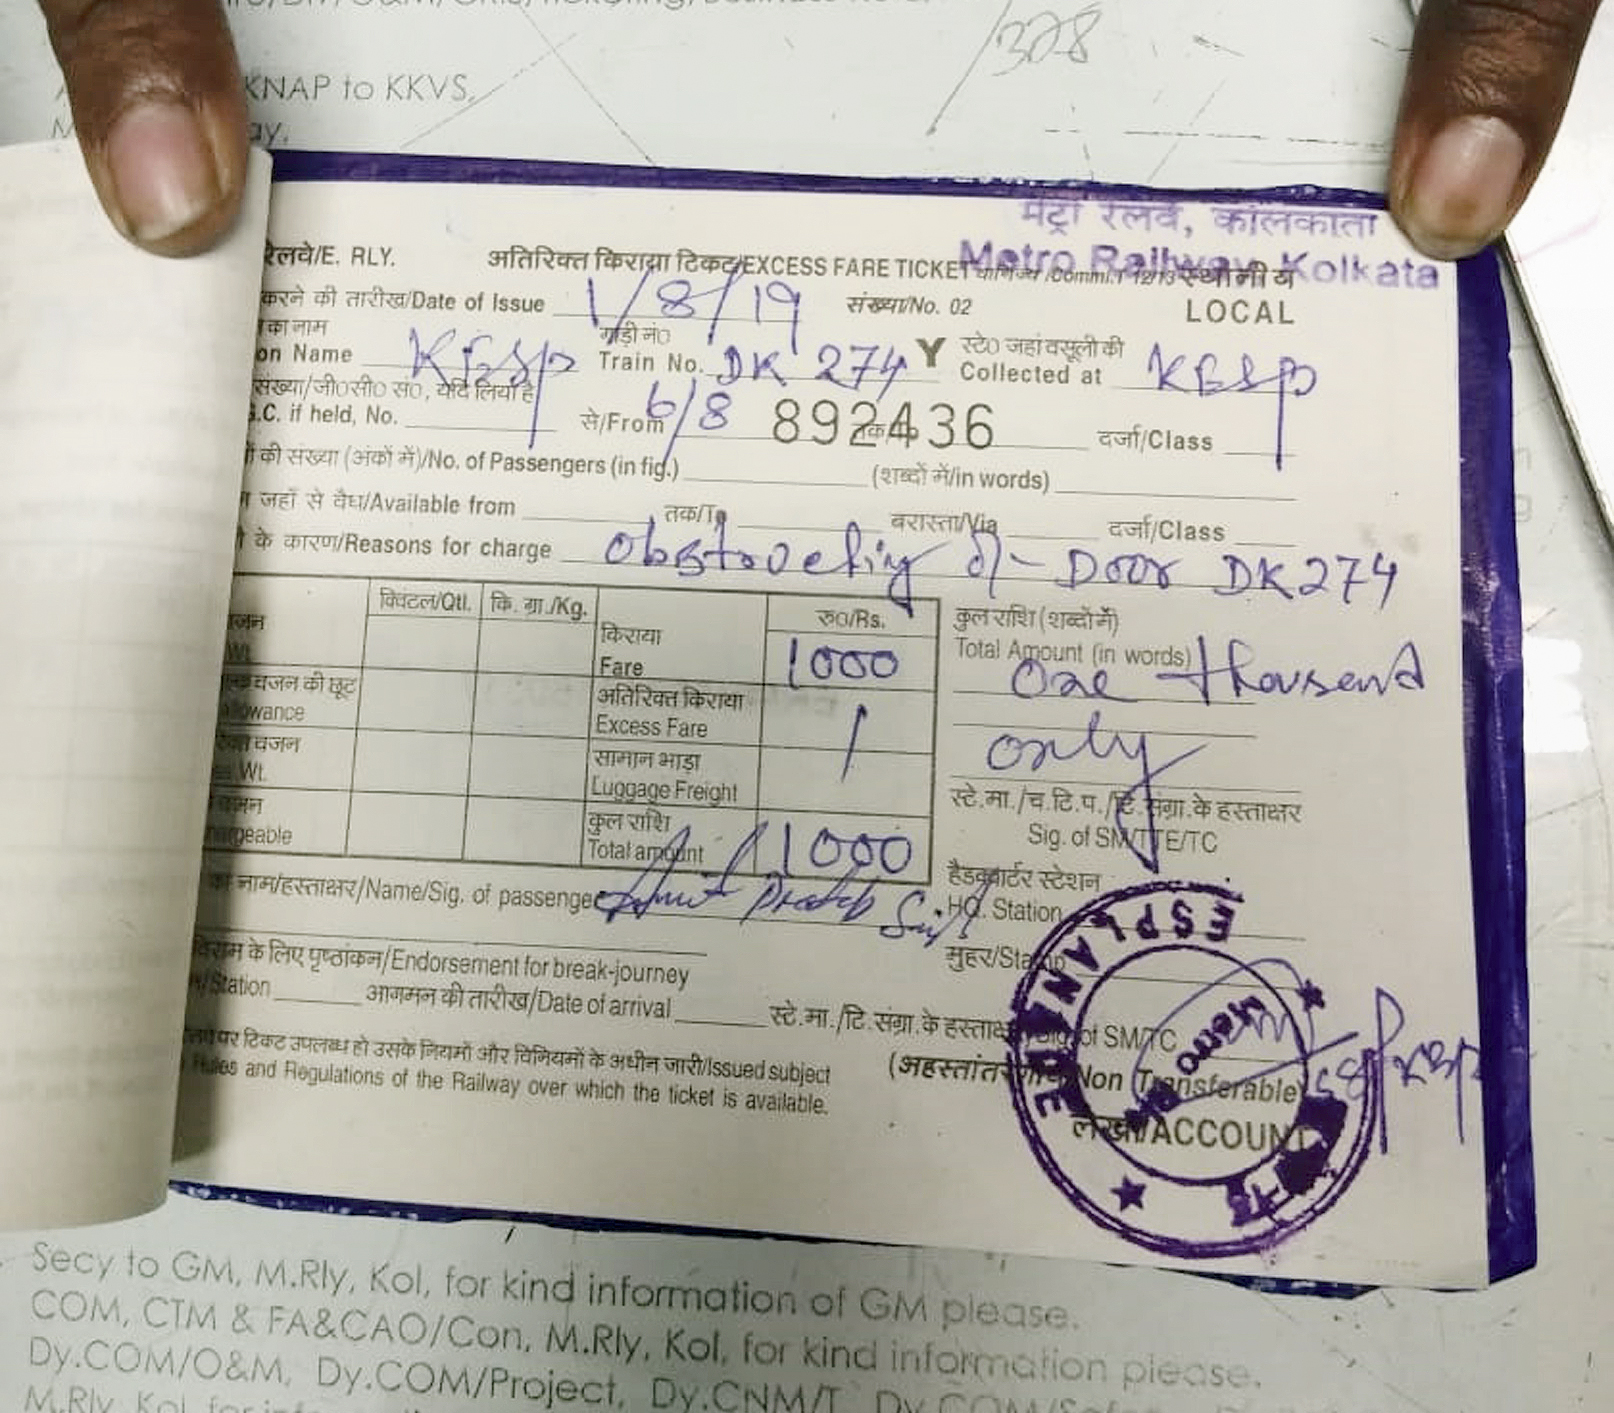 /328
KNAP to KKVS,
मेट्रो रेलवे, कोलकाता
Metro Railway, Kolkata
रेलवे/E. RLY. अतिरिक्त किराया टिकट/EXCESS FARE TICKET वाणिज्य/Comml.T 12/13 स्थानीय
LOCAL
करने की तारीख/Date of Issue 1/8/19 संख्या/No. 02
का नाम गाड़ी नं० Y स्टे० जहां वसूली की
on Name KESP Train No. DK 274 Collected at KESP
संख्या/जी०सी० सं०, यदि लिया है
G.C. if held, No. से/From 6/8 892436 दर्जा/Class
की संख्या (अंकों में)/No. of Passengers (in fig.) (शब्दों में/in words)
जहाँ से वैध/Available from तक/To बरास्ता/Via दर्जा/Class
के कारण/Reasons for charge Obstructing of- Door DK274
क्विंटल/Qtl. कि. ग्रा./Kg. रु०/Rs.
किराया
Fare 1000
अतिरिक्त किराया
Excess Fare /
सामान भाड़ा
Luggage Freight
कुल राशि
Total amount 1000
वजन की छूट
allowance
वजन
Wt.
chargeable
कुल राशि (शब्दों में)
Total Amount (in words) One thousand
only
स्टे.मा./च.टि.प./टि.संग्रा.के हस्ताक्षर
Sig. of SM/TTE/TC
का नाम/हस्ताक्षर/Name/Sig. of passenger Amit Pratap Singh
हैडक्वार्टर स्टेशन
HQ. Station
मुहर/Stamp
विराम के लिए पृष्ठांकन/Endorsement for break-journey
/Station आगमन की तारीख/Date of arrival स्टे.मा./टि.संग्रा.के हस्ताक्षर/Sig. of SM/TC
पर टिकट उपलब्ध हो उसके नियमों और विनियमों के अधीन जारी/Issued subject
Rules and Regulations of the Railway over which the ticket is available.
(अहस्तांतरणीय/Non Transferable)
लेखा/ACCOUNT
ESPLANADE
Metro
Secy to GM, M.Rly, Kol, for kind information of GM please.
COM, CTM & FA&CAO/Con, M.Rly, Kol, for kind information please.
Dy.COM/O&M, Dy.COM/Project, Dy.CNM/T